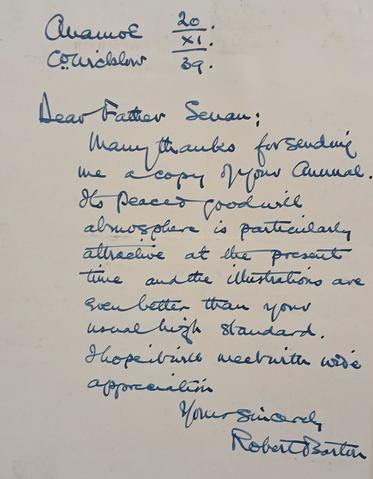 Anamoe 20
XI.
Co Wicklow 39.
Dear Father Senan;
Many thanks for sending
me a copy of your Annual.
Its peace & goodwill
atmosphere is particularly
attractive at the present
time and the illustrations are
even better than your
usual high standard.
I hope it will meet with wide
appreciation
Yours sincerely
Robert Barton